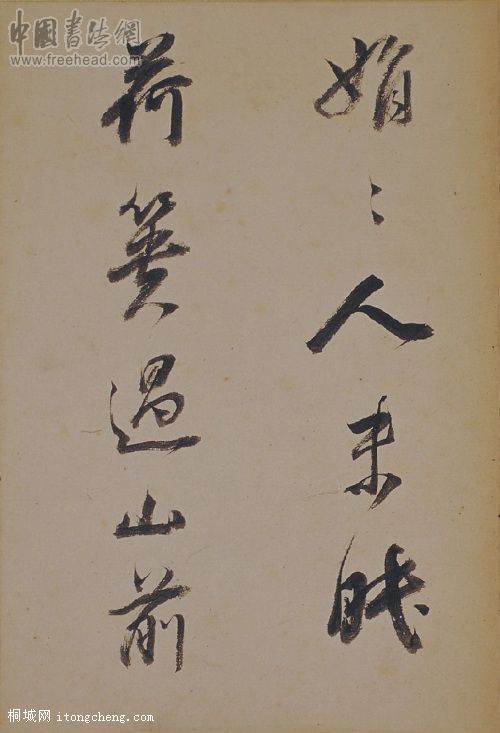 中國書法網
www.freehead.com
娟〻人未眠
荷簣過山前
桐城网 itongcheng.com